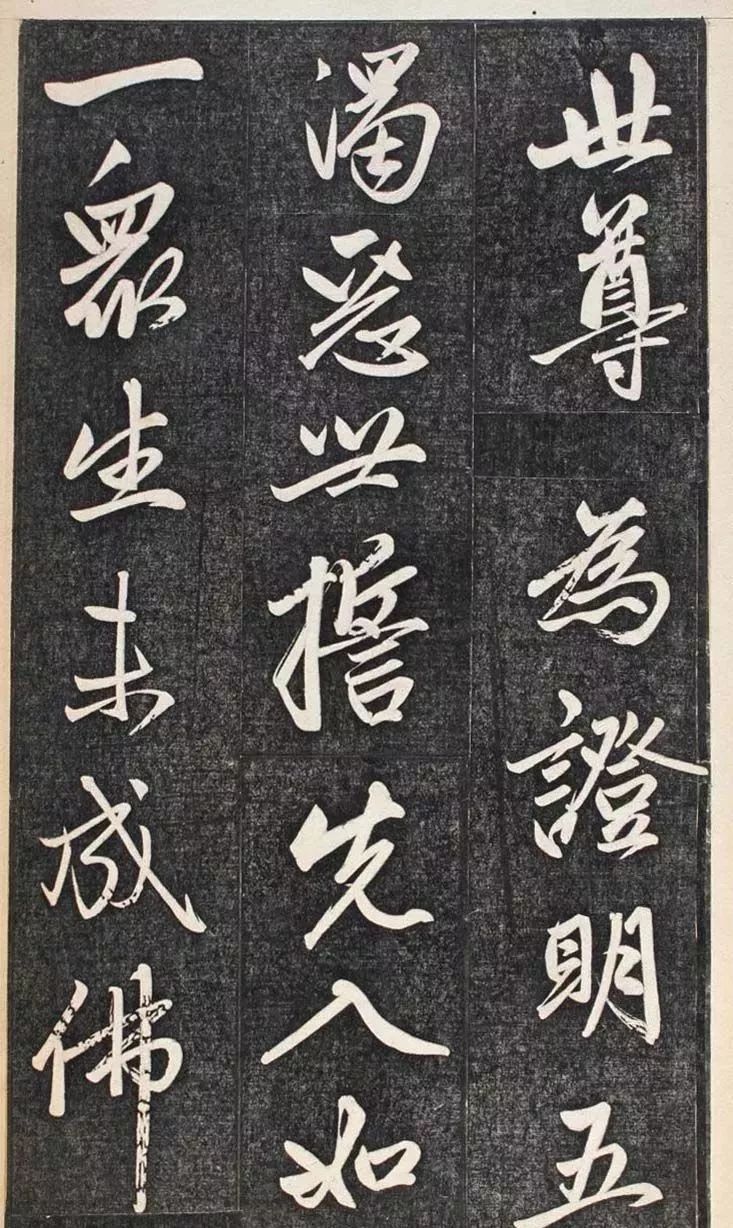 世尊為證明五
濁惡世誓先入如
一眾生未成佛